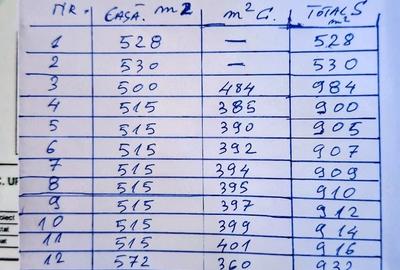 NR. CASĂ. m2 m² C. TOTAL S m²
1 528 — 528
2 530 — 530
3 500 484 984
4 515 385 900
5 515 390 905
6 515 392 907
7 515 394 909
8 515 395 910
9 515 397 912
10 515 399 914
11 515 401 916
12 572 360 932